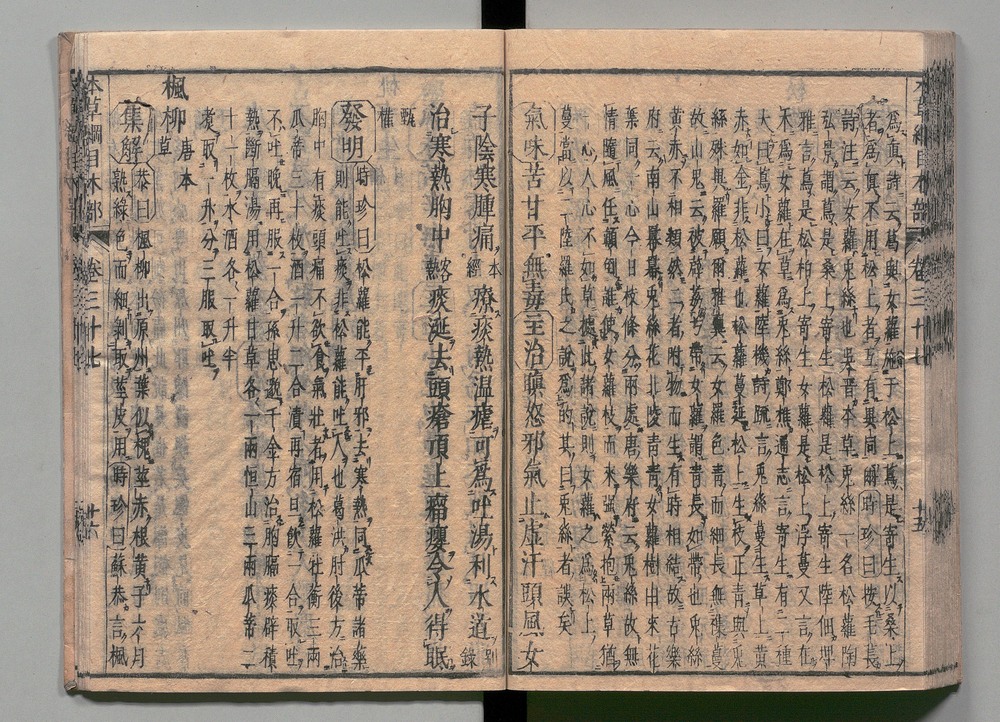 本草綱目木部 卷三十七 十五
爲眞詩云蔦與女蘿施于松上蔦是寄生以桑上
者爲眞不用松上者互有異同爾時珍曰按毛萇
詩注云女蘿兔絲也吳普本草兔絲一名松蘿陶
弘景謂蔦是桑上寄生松蘿是松上寄生陸佃埤
雅言蔦是松柏上寄生女蘿是松上浮蔓又言在
木爲女蘿在草爲兔絲鄭樵通志言寄生有二種
大曰蔦小曰女蘿陸機詩疏言兔絲蔓生草上黃
赤如金非松蘿也松蘿蔓延松上生枝正青與兔
絲殊異羅願爾雅翼云女蘿色青而細長無雜蔓
故山鬼云被薜荔兮帶女蘿謂青長如帶也兔絲
黃赤不相類然二者附物而生有時相結故古樂
府云南山冪冪兔絲花北陵青青女蘿樹由來花
葉同一心今日枝條分兩處唐樂府云兔絲故無
情隨風任顛倒誰使女蘿枝而來強縈抱兩草猶
一心人心不如草據此諸說則女蘿之爲松上
蔓當以二陸羅氏之說爲的其曰兔絲者誤矣
氣味苦甘平無毒主治瞋怒邪氣止虛汗頭風女
子陰寒腫痛本經療痰熱溫瘧可爲吐湯利水道別錄
治寒熱胸中客痰涎去頭瘡項上瘤癭令人得眠
甄權
發明時珍曰松蘿能平肝邪去寒熱同瓜蒂諸藥
則能吐痰非松蘿能吐人也葛洪肘後方治
胸中有痰頭痛不欲食氣壯者用松蘿杜衡三兩
瓜蒂三十枚酒一升二合漬再宿旦飲一合取吐
不吐晚再服一合孫思邈千金方治胸膈痰澼積
熱斷膈湯用松蘿甘草各一兩恒山三兩瓜蒂二
十一枚水酒各一升半
煮取一升分三服取吐
楓柳唐本草
集解恭曰楓柳出原州葉似槐莖赤根黃子六月
熟綠色而細剝取莖皮用時珍曰蘇恭言楓
本草綱目木部 卷三十七 十六